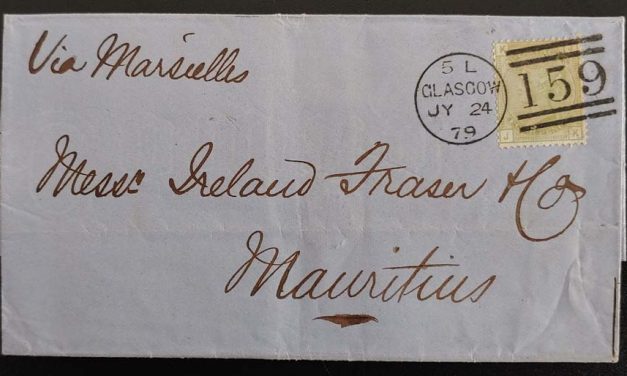 Via Marsielles
5 L
GLASGOW
JY 24
79
159
J K
Messrs Ireland Fraser & Co
Mauritius